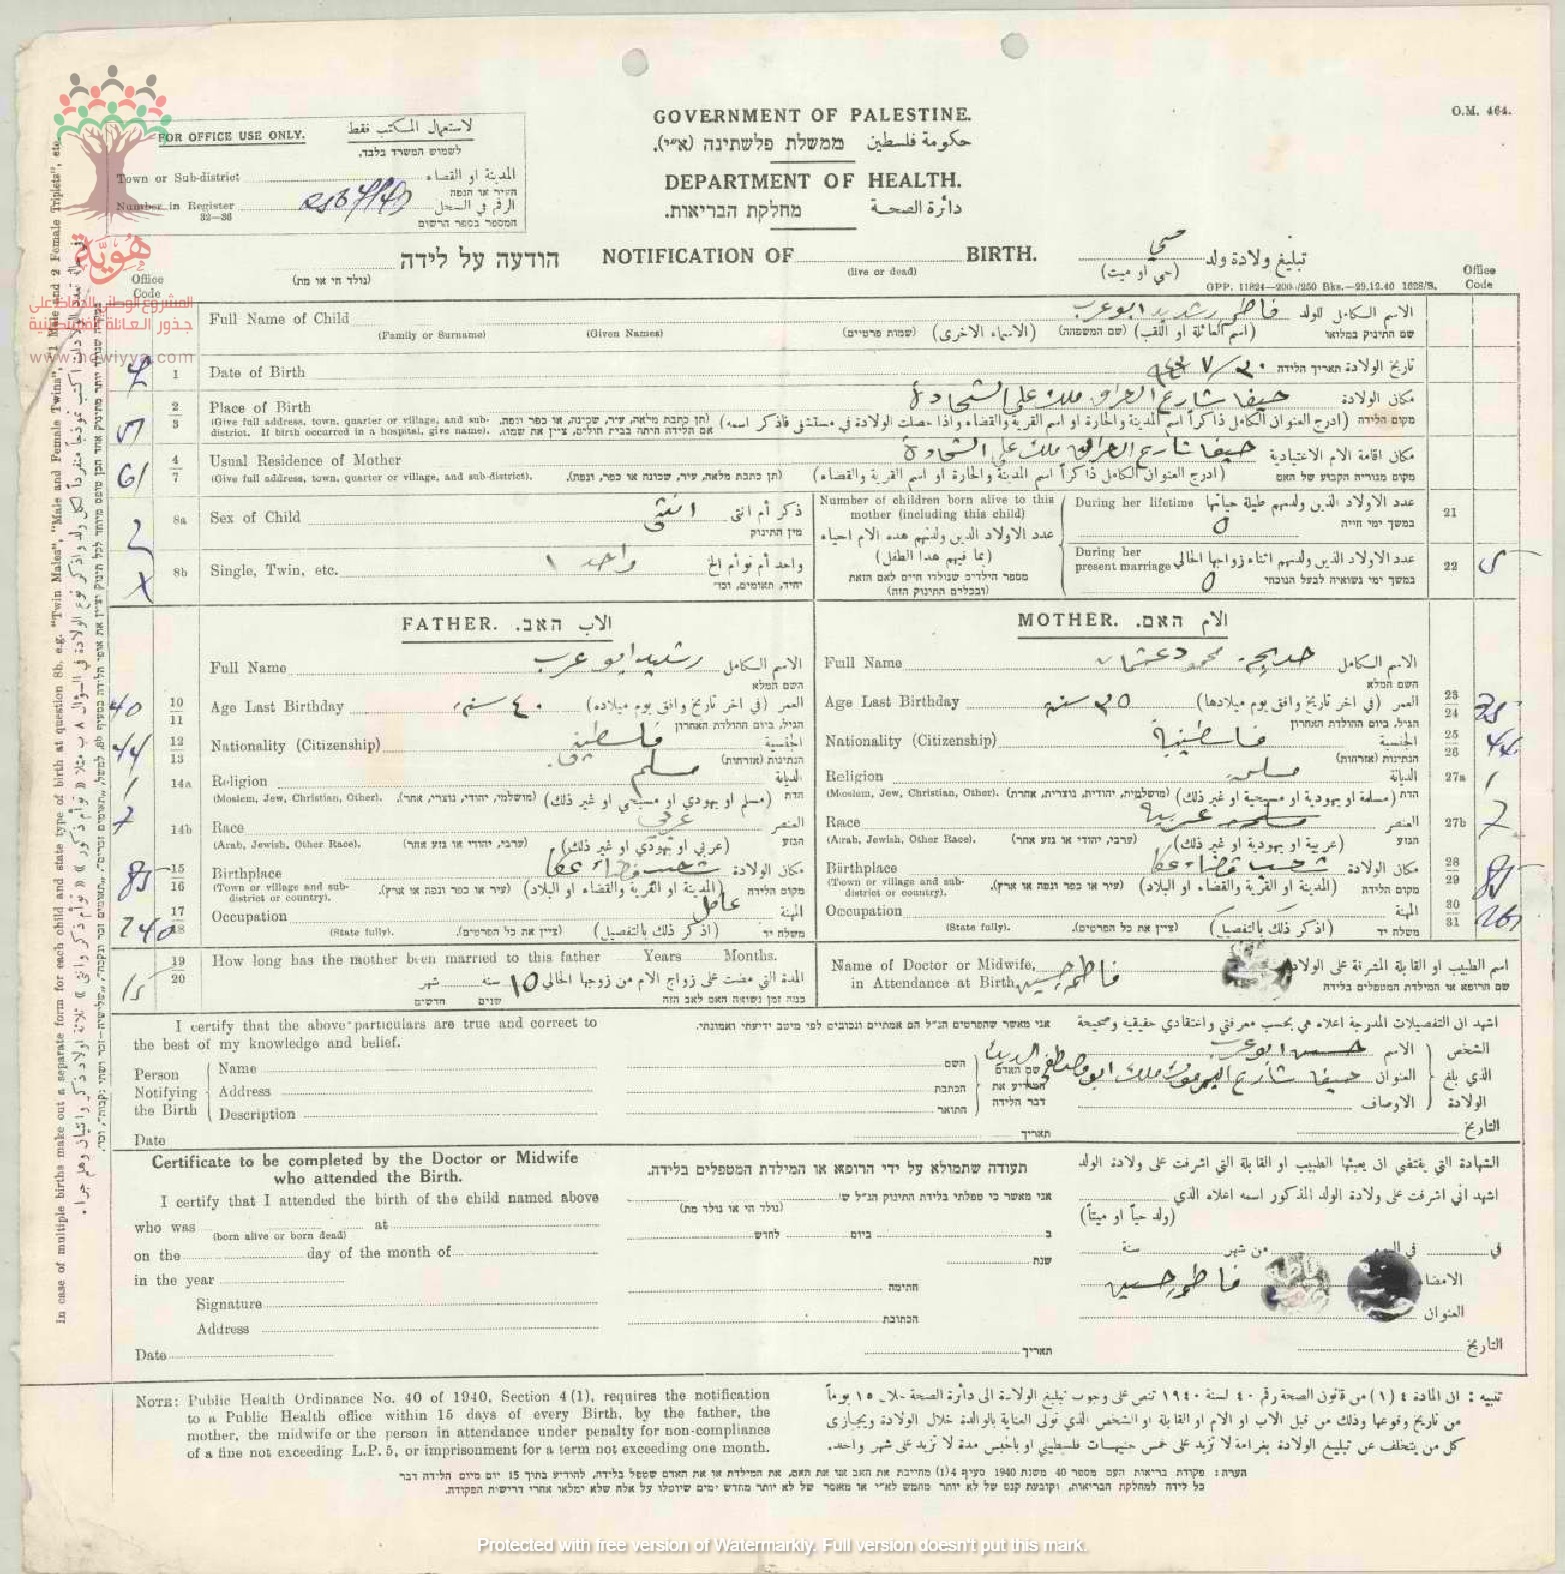 O.M. 464.
FOR OFFICE USE ONLY. لاستعمال المكتب فقط
לשמוש המשרד בלבד.
Town or Sub-district المدينة او القضاء
העיר או הנפה
Number in Register الرقم في السجل
32—36
המספר בספר הרשום
GOVERNMENT OF PALESTINE.
حكومة فلسطين ממשלת פלשתינה (א״י).
DEPARTMENT OF HEALTH.
دائرة الصحة מחלקת הבריאות.
הודעה על לידה NOTIFICATION OF BIRTH. تبليغ ولادة ولد حي
(נולד חי או מת) (live or dead) (حي او ميت)
GPP. 11824—200
هويّة
المشروع الوطني للحفاظ على
جذور العائلة الفلسطينية
www.howiyya.com
Office Code
Office Code
Full Name of Child فاطمه رشيد ابو عرب الاسم الكامل للولد
(Family or Surname) (Given Names) (שמות פרטיים) (الاسماء الاخرى) (שם המשפחה) (اسم العائلة او اللقب) שם התינוק במלואו
1 Date of Birth تاريخ الولادة תאריך הלידה
2 3 Place of Birth حيفا شارع العراق ملك علي مكان الولادة
(Give full address, town, quarter or village, and sub-district. If birth occurred in a hospital, give name). (תן כתבת מלאה, עיר, שכונה, או כפר ונפה. אם הלידה היתה בבית חולים, ציין את שמו. (ادرج العنوان الكامل ذاكراً اسم المدينة والحارة او اسم القرية والقضاء واذا حصلت الولادة في مستشفى فاذكر اسمه) מקום הלידה
4 7 Usual Residence of Mother حيفا شارع العراق ملك علي مكان اقامة الام الاعتيادية
(Give full address, town, quarter or village, and sub-district). (תן כתבת מלאה, עיר, שכונה או כפר, ונפה). (ادرج العنوان الكامل ذاكراً اسم المدينة والحارة او اسم القرية والقضاء) מקום מגורית הקבוע של האם
8a Sex of Child انثى ذكر أم انثى
מין התינוק
8b Single, Twin, etc. واحد ١ واحد أم توأم الخ
יחיד, תאומים, וכד׳
Number of children born alive to this
mother (including this child)
عدد الاولاد الذين ولدتهم هذه الام احياء
(بما فيهم هذا الطفل)
מספר הילדים שנולדו חיים לאם הזאת
(ובכללם התינוק הזה)
During her lifetime عدد الاولاد الذين ولدتهم طيلة حياتها 21
٥ במשך ימי חייה
During her present marriage عدد الاولاد الذين ولدتهم اثناء زواجها الحالي 22
٥ במשך ימי נשואיה לבעל הנוכחי
FATHER. الاب האב.
Full Name رشيد ابو عرب الاسم الكامل
השם המלא
40 10 11 Age Last Birthday ٤٠ سنه العمر (في اخر تاريخ وافق يوم ميلاده)
הגיל, ביום ההולדת האחרון
44 12 13 Nationality (Citizenship) الجنسية
הנתינות (אזרחות)
1 14a Religion مسلم الديانة
(Moslem, Jew, Christian, Other). (מושלמי, יהודי, נוצרי, אחר). (مسلم او يهودي او مسيحي او غير ذلك) הדת
7 14b Race عربي العنصر
(Arab, Jewish, Other Race). (ערבי, יהודי או גזע אחר) (عربي او يهودي او غير ذلك) הגזע
85 15 16 Birthplace شعب قضاء عكا مكان الولادة
(Town or village and sub-district or country). (עיר או כפר ונפה או ארץ). (المدينة او القرية والقضاء او البلاد) מקום הלידה
240 17 18 Occupation عامل المهنة
(State fully). (ציין את כל הפרטים). (اذكر ذلك بالتفصيل) משלח יד
MOTHER. الام האם.
Full Name خديجة محمود عثمان الاسم الكامل
השם המלא
Age Last Birthday ٣٥ سنه العمر (في اخر تاريخ وافق يوم ميلادها) 23 24 35
הגיל, ביום ההולדת האחרון
Nationality (Citizenship) فلسطينية الجنسية 25 26 44
הנתינות (אזרחות)
Religion مسلمه الديانة 27a 1
(Moslem, Jew, Christian, Other). (מושלמית, יהודית, נוצרית, אחרת) (مسلمة او يهودية او مسيحية او غير ذلك) הדת
Race عربية العنصر 27b 7
(Arab, Jewish, Other Race). (ערבי, יהודי או גזע אחר) (عربية او يهودية او غير ذلك) הגזע
Birthplace شعب قضاء عكا مكان الولادة 28 29 85
(Town or village and sub-district or country). (עיר או כפר ונפה או ארץ). (المدينة او القرية والقضاء او البلاد) מקום הלידה
Occupation المهنة 30 31
(State fully). (ציין את כל הפרטים). (اذكر ذلك بالتفصيل) משלח יד
15 19 20 How long has the mother been married to this father Years Months.
المدة التي مضت على زواج الام من زوجها الحالي ١٥ سنة شهر
כמה זמן נשואה האם לאב הזה שנים חדשים
Name of Doctor or Midwife, اسم الطبيب او القابلة المشرفة على الولادة
in Attendance at Birth فاطمه حسين שם הרופא או המילדת המטפלים בלידה
I certify that the above particulars are true and correct to
the best of my knowledge and belief.
אני מאשר שהפרטים הנ״ל הם אמתיים ונכונים לפי מיטב ידיעתי ואמונתי.
اشهد ان التفصيلات المدرجة اعلاه هي بحسب معرفتي واعتقادي حقيقية وصحيحة
Person Notifying the Birth
Name השם الاسم حسين ابو عرب الشخص
Address הכתבת العنوان حيفا شارع ملك ابو مصطفى الذي بلغ
Description התואר الاوصاف الولادة
שם האדם המודיע את דבר הלידה
Date תאריך التاريخ
Certificate to be completed by the Doctor or Midwife
who attended the Birth.
תעודה שתמולא על ידי הרופא או המילדת המטפלים בלידה.
الشهادة التي يقتضي ان يعبئها الطبيب او القابلة التي اشرفت على ولادة الولد
I certify that I attended the birth of the child named above
אני מאשר כי טפלתי בלידת התינוק הנ״ל ש׳
اشهد اني اشرفت على ولادة الولد المذكور اسمه اعلاه الذي
who was at
(born alive or born dead) (נולד חי או נולד מת) (ولد حياً او ميتاً)
on the day of the month of ב ביום לחדש في في اليوم من شهر سنة
in the year שנת
Signature חתימה فاطمه حسين الامضاء
Address הכתובת العنوان
Date תאריך التاريخ
NOTE: Public Health Ordinance No. 40 of 1940, Section 4 (1), requires the notification
to a Public Health office within 15 days of every Birth, by the father, the
mother, the midwife or the person in attendance under penalty for non-compliance
of a fine not exceeding L.P. 5, or imprisonment for a term not exceeding one month.
تنبيه : ان المادة ٤ (١) من قانون الصحة رقم ٤٠ لسنة ١٩٤٠ تنص على وجوب تبليغ الولادة الى دائرة الصحة خلال ١٥ يوماً
من تاريخ وقوعها وذلك من قبل الاب او الام او القابلة او الشخص الذي تولى العناية بالوالدة خلال الولادة ويجازى
كل من يتخلف عن تبليغ الولادة بغرامة لا تزيد على خمس جنيهات فلسطيني او بالحبس مدة لا تزيد على شهر واحد.
הערה: פקודת בריאות העם מספר 40 משנת 1940 סעיף 4(1) מחייבת את האב או את האם, את המילדת או את האדם שטפל בלידה, להודיע בתוך 15 יום מיום הלידה דבר
כל לידה למחלקת הבריאות,
In case of multiple births make out a separate form for each child and state type of birth at question 8b. e.g. "Twin Males", "Male and Female Twins", "1 Male and 2 Female Triplets", etc.
Protected with free version of Watermarkly. Full version doesn't put this mark.